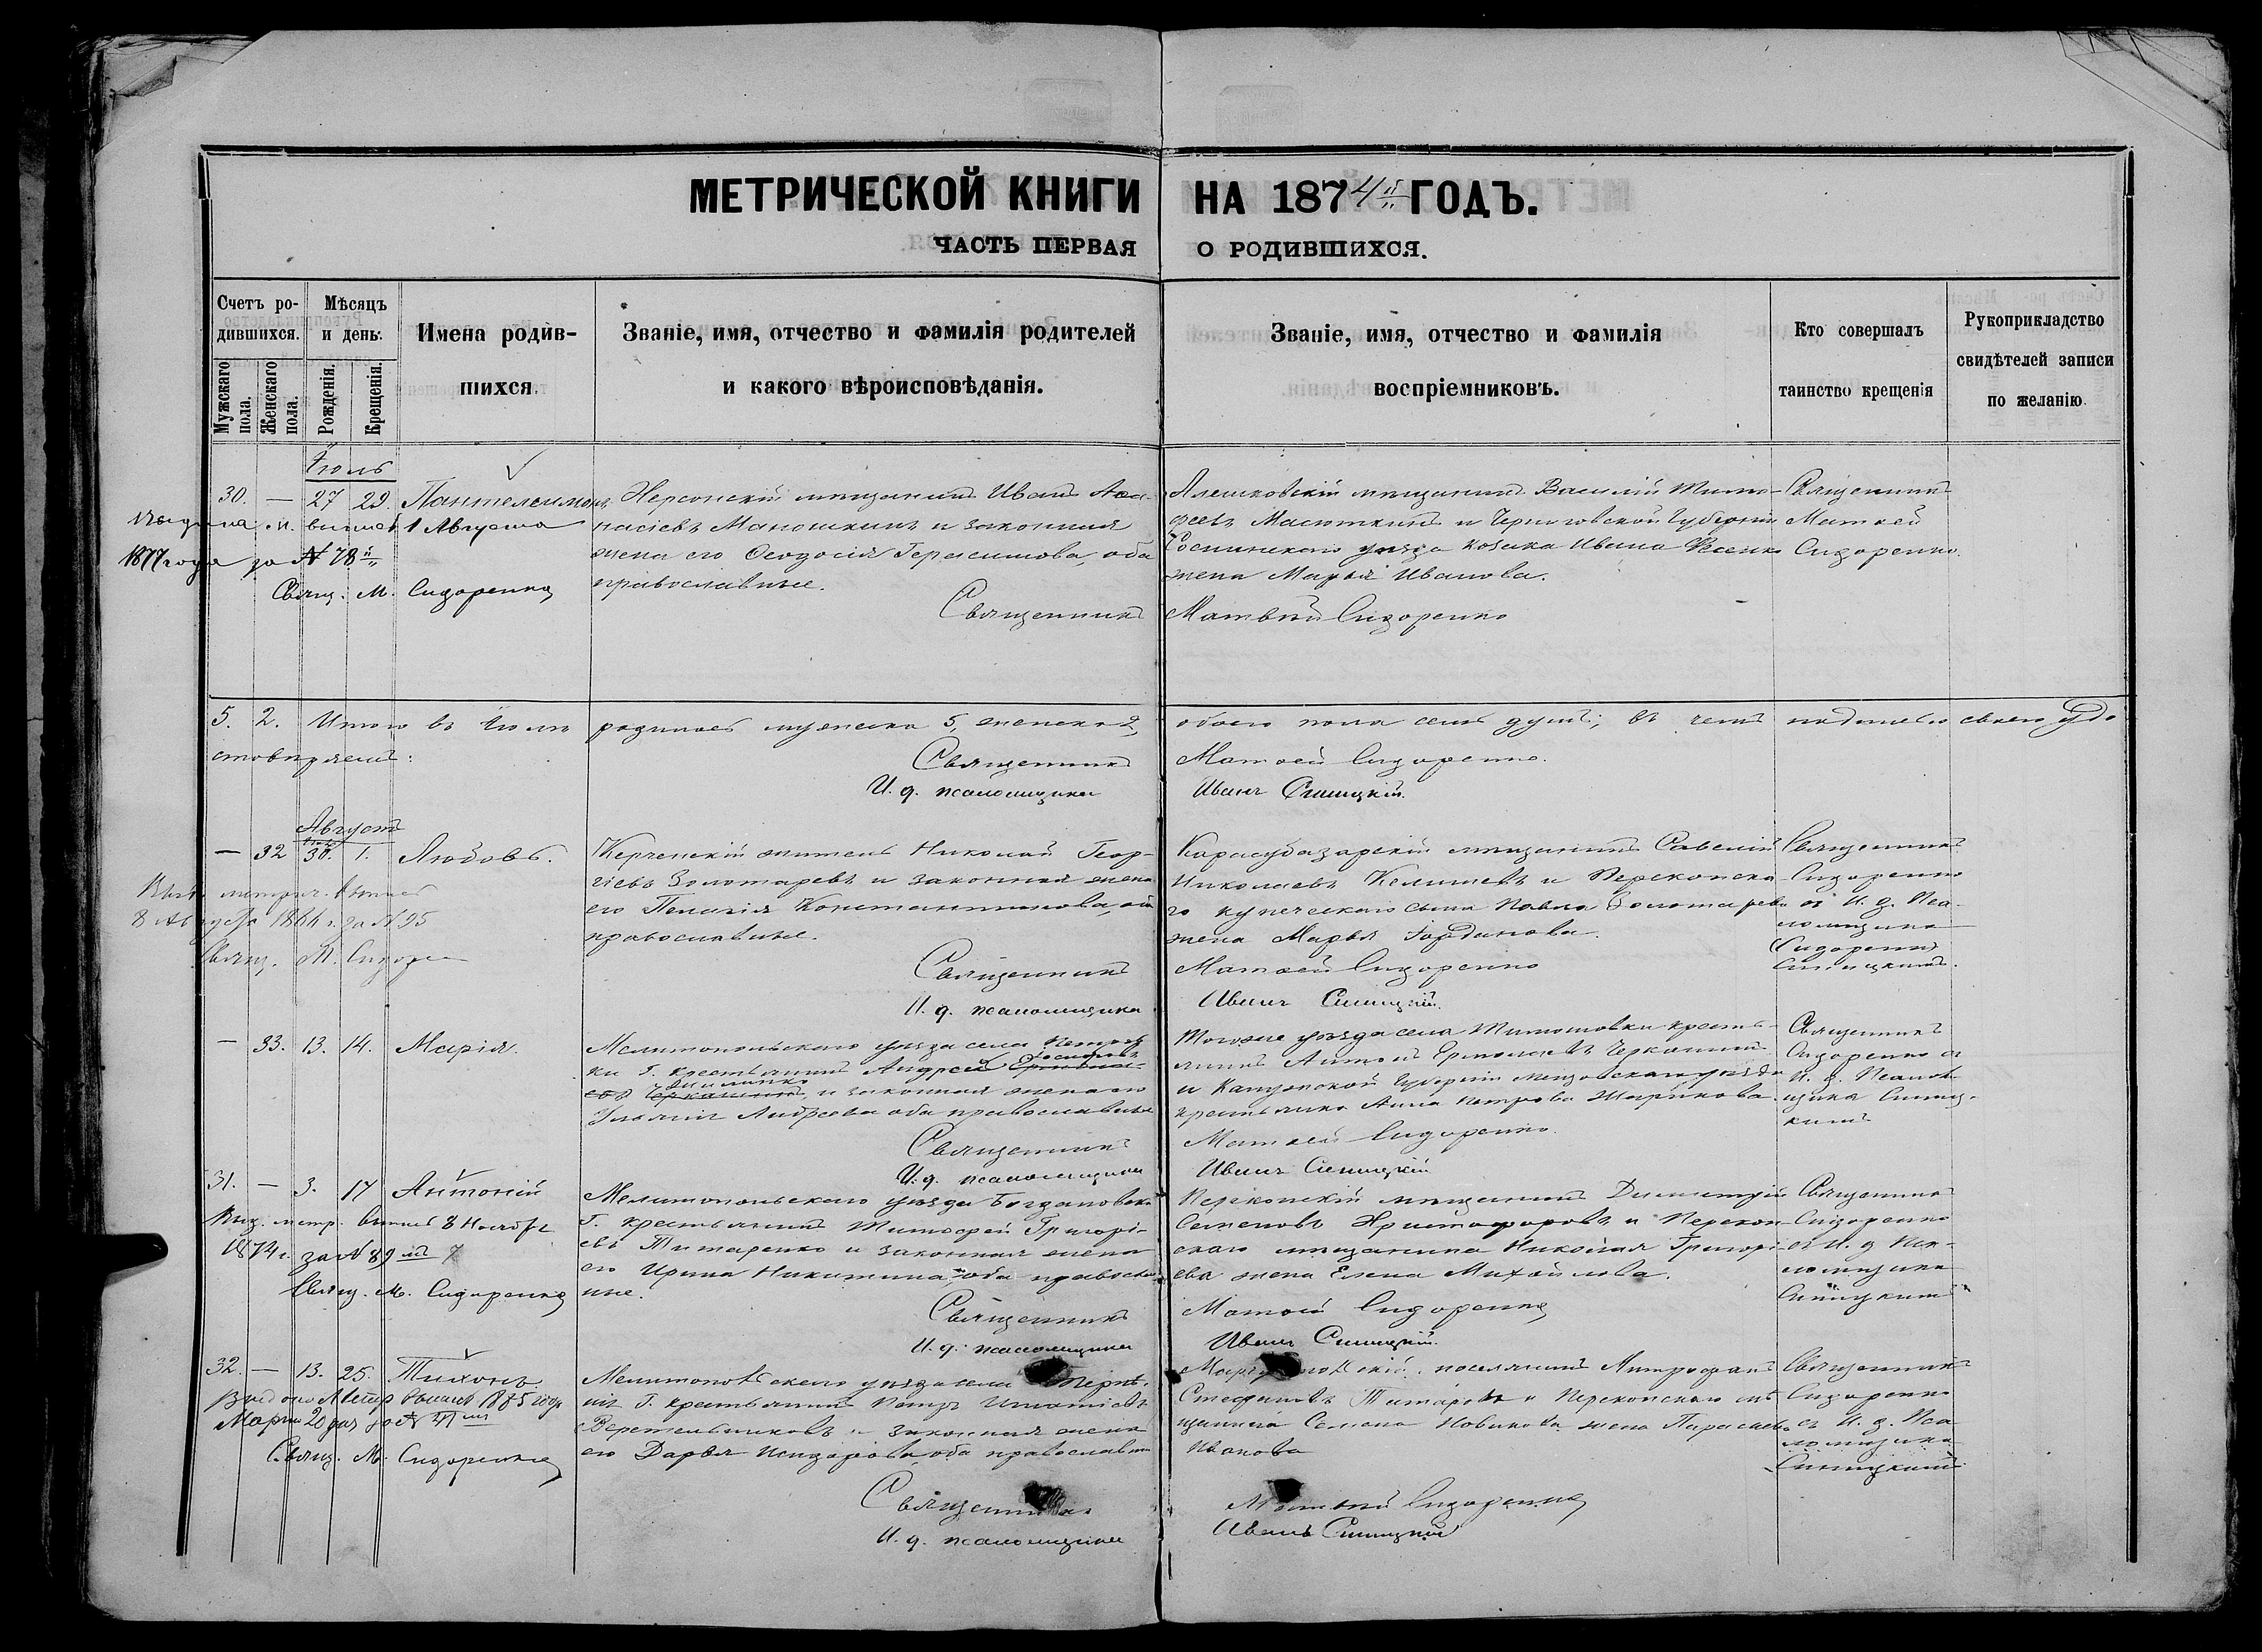 МЕТРИЧЕСКОЙ КНИГИ НА 1874й ГОДЪ.
ЧАСТЬ ПЕРВАЯ О РОДИВШИХСЯ.
Счетъ ро-
дившихся.
Мужскаго пола.
Женскаго пола.
Мѣсяцъ
и день.
Рожденія.
Крещенія.
Имена родив-
шихся.
Званіе, имя, отчество и фамилія родителей
и какого вѣроисповѣданія.
Званіе, имя, отчество и фамилія
воспріемниковъ.
Кто совершалъ
таинство крещенія
Рукоприкладство
свидѣтелей записи
по желанію.
Іюль
30. — 27 29. Пантелеимонъ
1 Августа
1877 года за № 78й
Свящ. М. Сидоренко
Херсонскій мѣщанинъ Иванъ Аѳа-
насіевъ Маношкинъ и законная
жена его Ѳеодосія Герасимова, оба
православные.
Священникъ
Алешковскій мѣщанинъ Василій Тимо-
феевъ Масюткинъ и Черниговской губерніи
уѣзда козака Ивана
жена Марья Иванова.
Матвѣй Сидоренко
Священникъ
Матвей
Сидоренко.
5. 2. Итого въ Іюлѣ родилось мужеска 5, женска 2, обоего пола семь душъ; въ чемъ подписью своею удо
стовѣряемъ:
Священникъ Матвей Сидоренко.
И. д. псаломщика Иванъ Синицкій.
Августъ
— 32 30. 1. Любовь.
8 Августа за № 95
Свящ. М. Сидоре
Керченскій житель Николай Геор-
гіевъ Золотаревъ и законная жена
его Пелагія Константинова, оба
православные.
Священникъ
И. д. псаломщика
Карасубазарскій мѣщанинъ Савелій
Николаевъ и Перекопска-
го купеческаго сына Павла Золотарева
жена Марья Іорданова.
Матвей Сидоренко
Иванъ Синицкій.
Священникъ
Сидоренко
съ И. д. Пса-
ломщика
Синицкимъ.
— 33. 13. 14. Марія.
Мелитопольскаго уѣзда села
ки Г. крестьянинъ Андрей
и законная жена его
Андреева оба православные
Священникъ
И. д. псаломщика
Тогоже уѣзда села Тимошовки кресть-
янинъ Антонъ Ермолаевъ Черкашинъ
и Калужской губерніи уѣзда
крестьянка Анна Петрова Шарикова.
Матвей Сидоренко.
Иванъ Синицкій
Священникъ
Сидоренко съ
И. д. Псалом-
щика Синиц-
кимъ
31. — 3. 17 Антоній
Выд. метр. выпись 8 Ноября
1874 г. за № 89мъ
Свящ. М. Сидоренко
Мелитопольскаго уѣзда Богдановки
Г. крестьянинъ Тимофей Григорі-
евъ Титаренко и законная жена
его Ирина Никитина, оба православ
ные.
Священникъ
И. д. псаломщика
Перекопскій мѣщанинъ Димитрій
Семеновъ Христофоровъ и Перекоп-
скаго мѣщанина Николая Григорі-
ева жена Елена Михайлова.
Матвей Сидоренко
Иванъ Синицкій.
Священникъ
Сидоренко
съ И. д Пса-
ломщика
Синицкимъ
32. — 13. 25. Тихонъ
Марта 20 дня за №
Свящ. М. Сидоренко
Мелитопольскаго уѣзда села
Г. крестьянинъ Петръ Игнатіевъ
Веретельниковъ и законная жена
его Дарья Исидорова, оба православные
Священникъ
И. д. псаломщика
поселянинъ Митрофанъ
Стефановъ Титаровъ и Перекопскаго мѣ
щанина Семена Новикова жена Параскева
Иванова
Матвѣй Сидоренко
Иванъ Синицкій
Священникъ
Сидоренко
съ И. д. Пса
ломщика
Синицкимъ